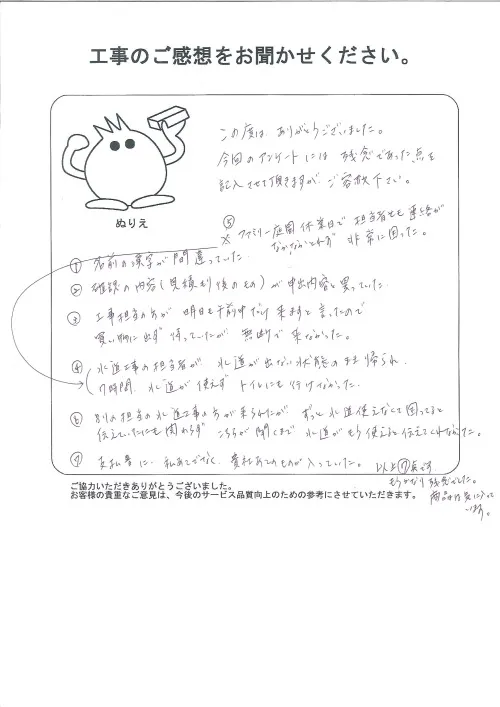 工事のご感想をお聞かせください。
この度は、ありがとうございました。
今回のアンケートには 残念であった点を
記入させて頂きますが、ご容赦下さい。
ぬりえ
① 名前の漢字が間違っていた。
② 確認の内容(見積もり後のもの)が申出内容と異っていた。
③ 工事担当の方が 明日も午前中だけ来ますと言ったので
買い物に出ず 待っていたが 無断で来なかった。
④ 水道工事の担当者が、水道が出ない状態のまま帰られ、
7時間、水道が使えず トイレにも行けなかった。
⑤
※ ファミリー庭園 休業日で 担当者とも連絡が
なかなかとれず 非常に困った。
⑥ 別の担当の水道工事の方が来られたが、ずっと水道使えなくて困ってると
伝えていたにも関わらず こちらが聞くまで 水道がもう使えると伝えてくれなかった。
⑦ 支払書に… 私あてでなく、貴社あてのものが入っていた。
以上⑦点です
もうかなり残念でした。
商品は気に入って
います。
ご協力いただきありがとうございました。
お客様の貴重なご意見は、今後のサービス品質向上のための参考にさせていただきます。